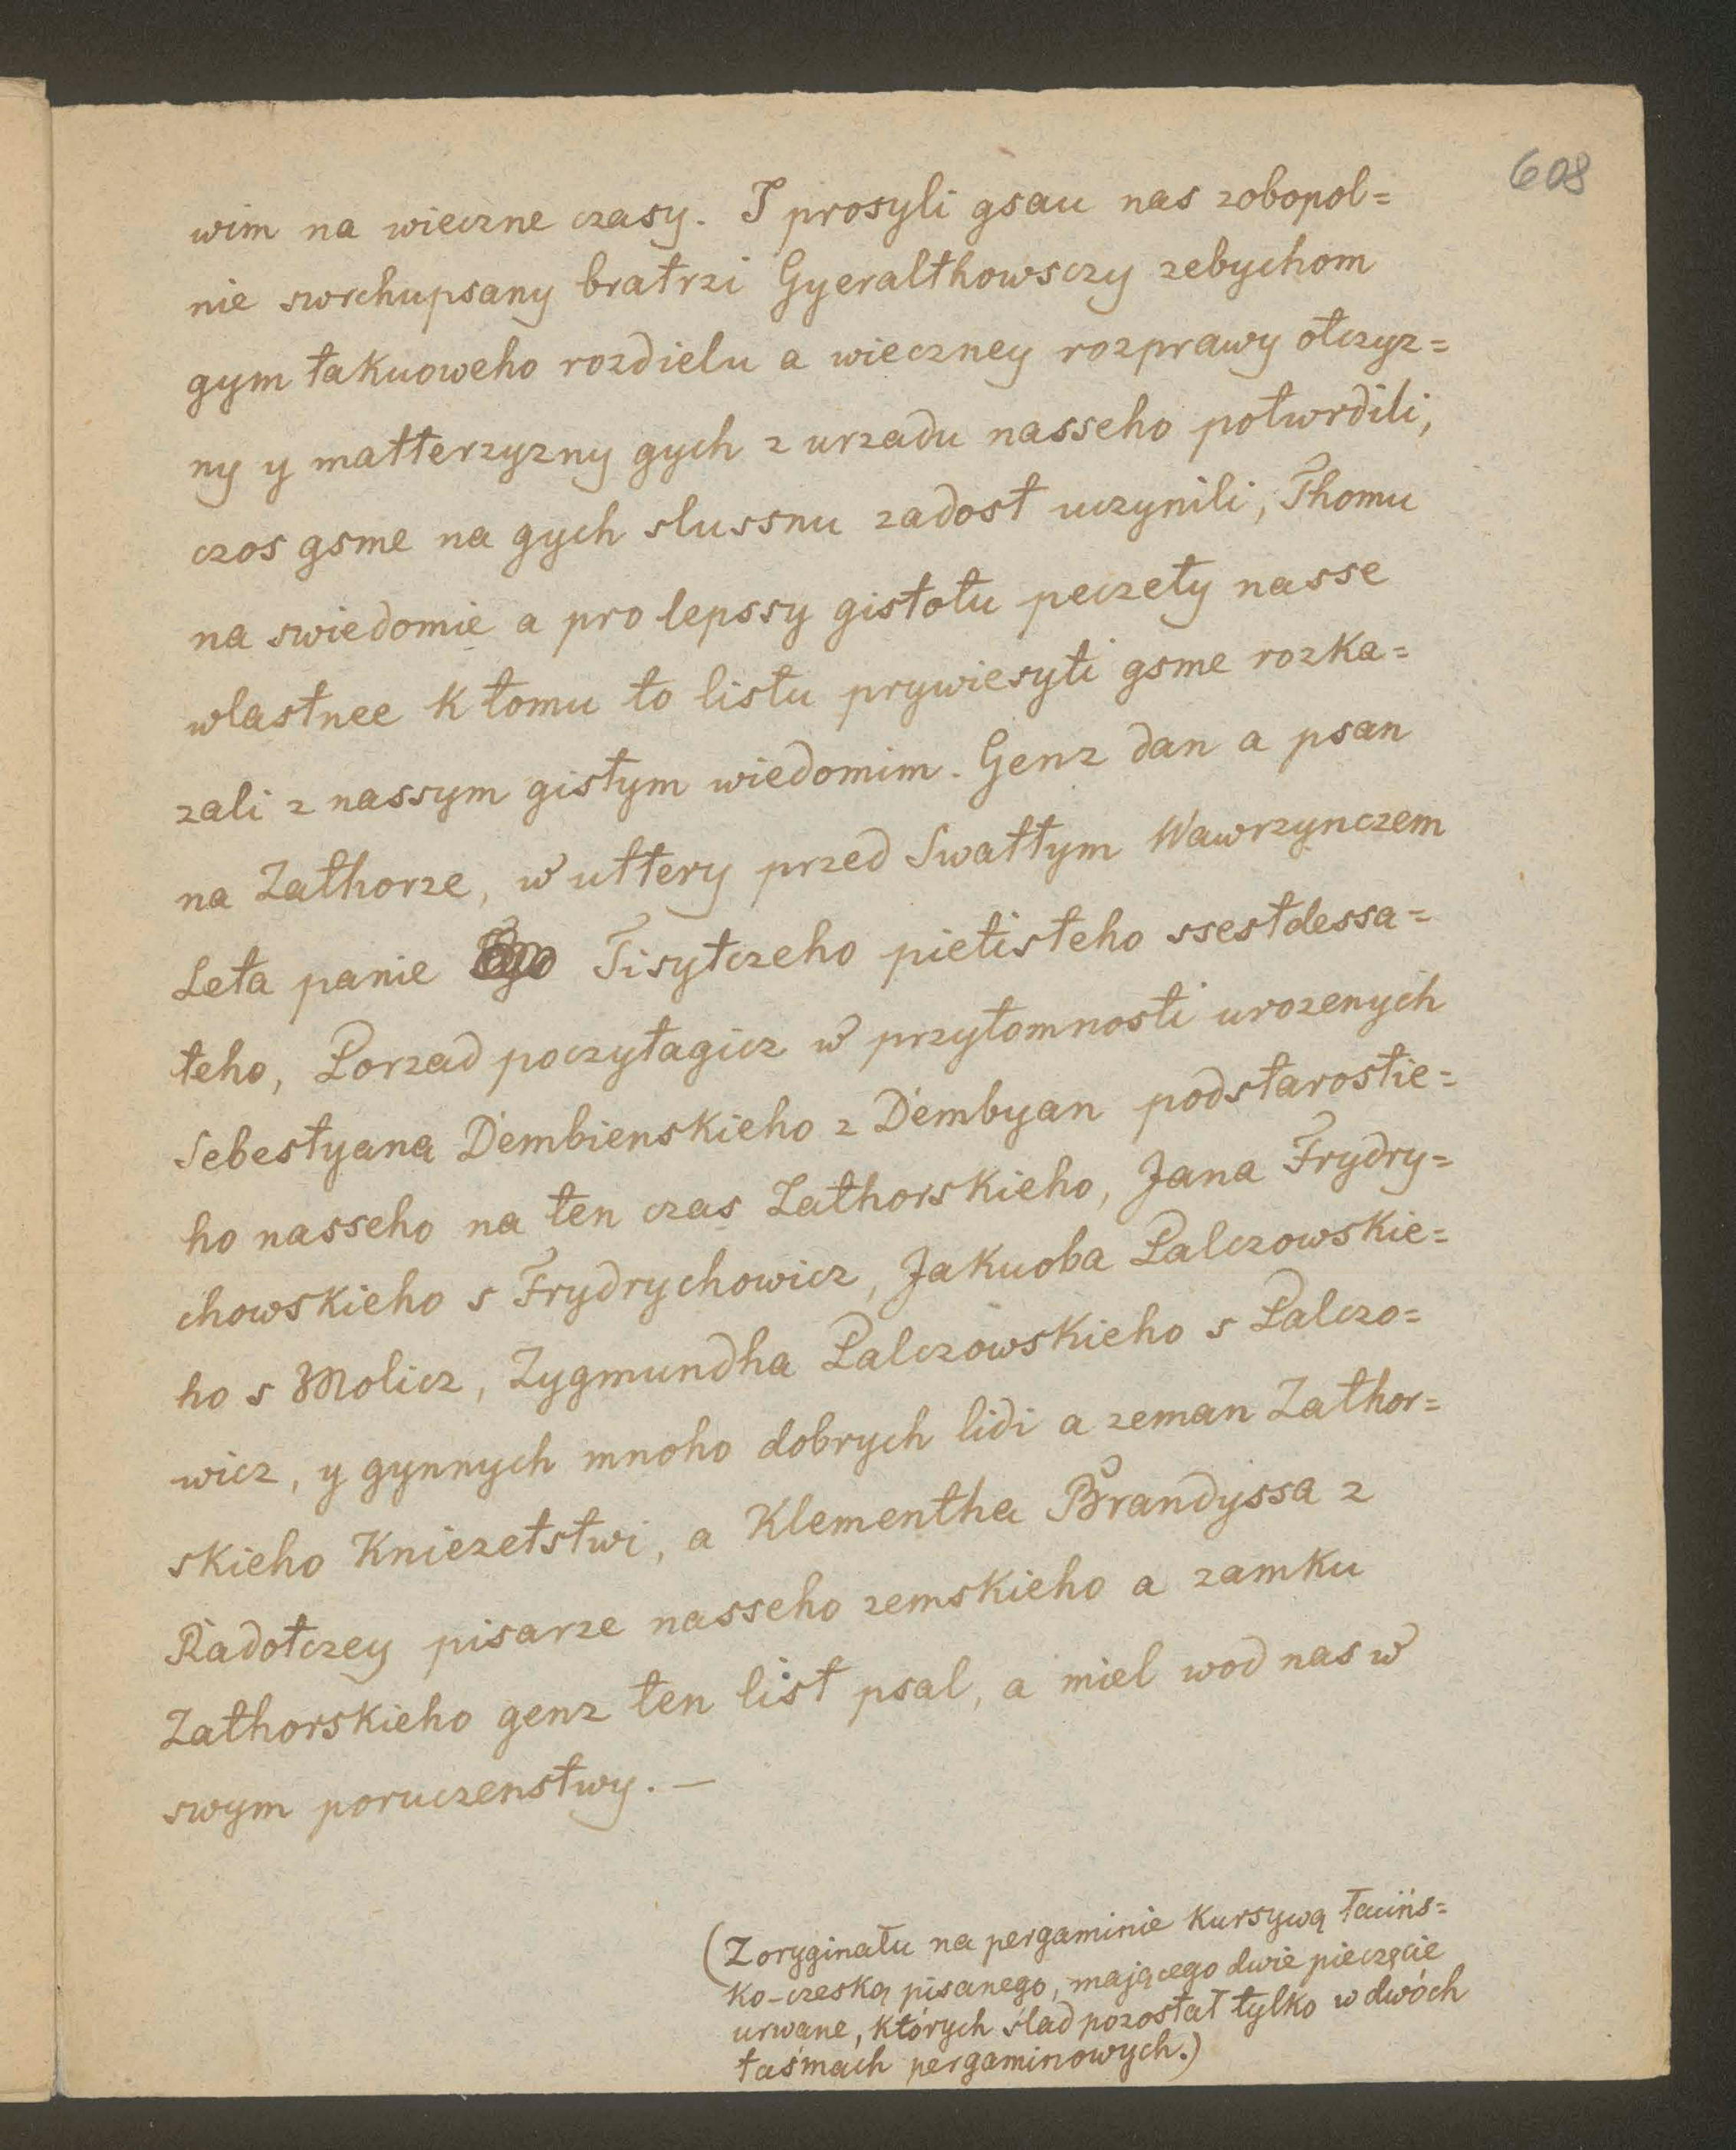 608
wim na wieczne czasy. I prosyli gsau nas zobopol=
nie swrchupsany bratrzi Gyeralthowsczy zebychom
gym takuoweho rozdielu a wieczney rozprawy otczyz=
ny y matterzyzny gych z urzadu nasseho potwrdili,
czos gsme na gych slussnu zadost uczynili, Thomu
na swiedomie a pro lepssy gistotu peczety nasse
wlastnee k tomu to listu prywiesyti gsme rozka=
zali z nassym gistym wiedomim. Genz dan a psan
na Zathorze, w uttery przed Swattym Wawrzynczem
Leta panie Tisytczeho pietisteho ssestdessa=
teho, Porzad poczytagicz w przytomnosti urozenych
Sebestyana Dembienskieho z Dembyan podstarostie=
ho nasseho na ten czas Zathorskieho, Jana Frydry=
chowskieho s Frydrychowicz, Jakuoba Palczowskie=
ho s Molicz, Zygmundha Palczowskieho s Palczo=
wicz, y gynnych mnoho dobrych lidi a zeman Zathor=
skieho Kniezetstwi, a Klementha Brandyssa z
Radotczey pisarze nasseho zemskieho a zamku
Zathorskieho genz ten list psal, a miel wod nas w
swym poruczenstwy. —
(Z oryginału na pergaminie kursywą łacińs=
ko-czeską pisanego, mającego dwie pieczęcie
urwane, których ślad pozostał tylko w dwóch
taśmach pergaminowych.)